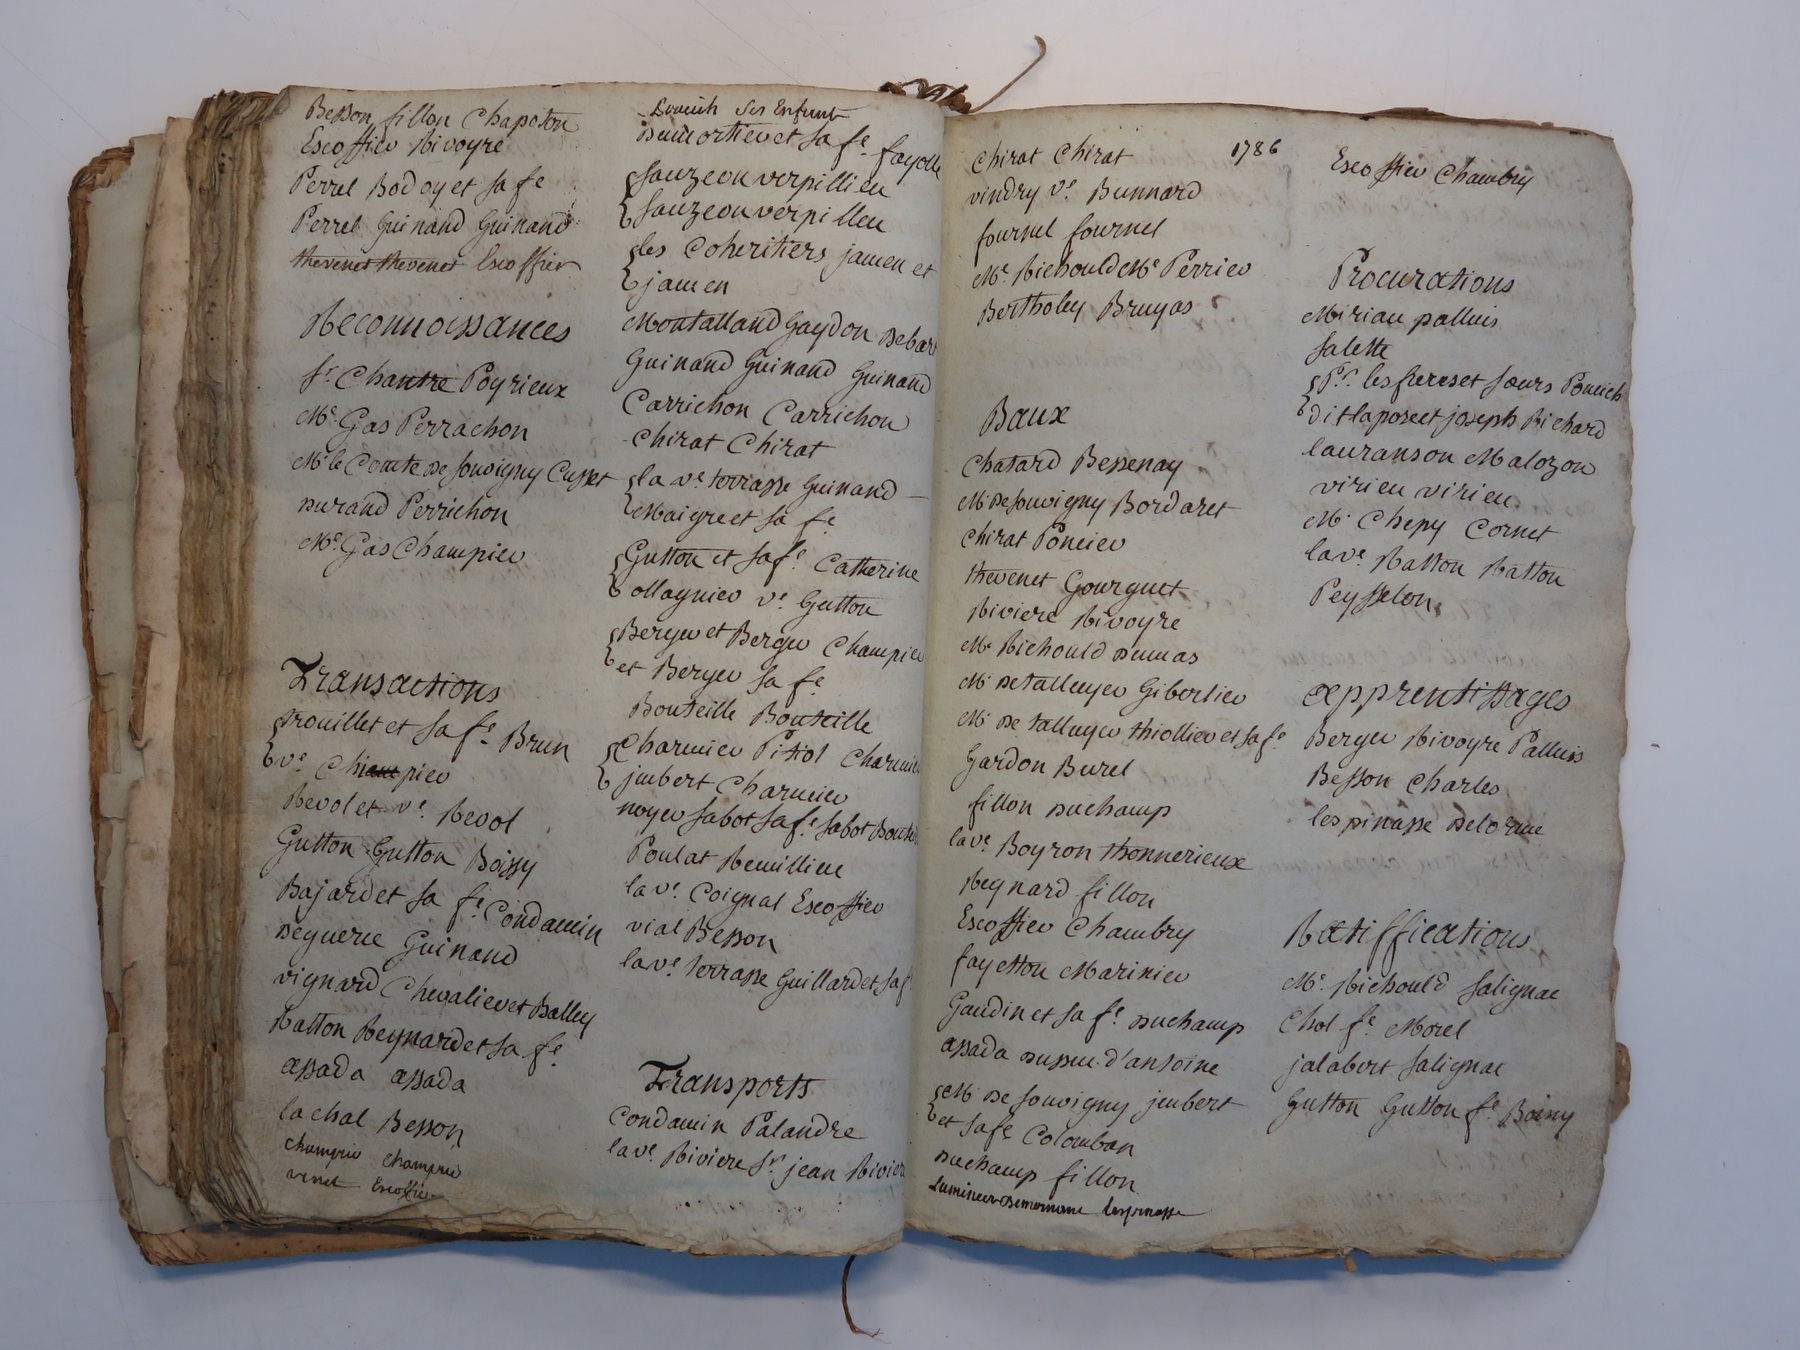 Besson fillon Chapoton
Escoffier Rivoyre
Perret Bodoy et sa fe
Perret Guinand Guinand
thevenet thevenet Escoffier
Reconnoissances
Sr. Chantre Poyrieux
Me. Gas Perrachon
Mr. le Comte de souvigny Cusset
durand Perrichon
Me. Gas Champier
Transactions
trouillet et sa fe. Brun
ve. Champier
Revol et ve. Revol
Gutton Gutton Boissy
Bajard et sa fe. Condamin
deguerre Guinand
vignard Chevalier et Balley
Ratton Reynard et sa fe
assada assada
lachal Besson
Champier Champier
venet Escoffier
Poncet Ses Enfants
dumortier et sa fe. fayolle
sauzeon verpillieu
sauzeon verpilleu
les Coheritiers jamen et
jamen
Montalland Gaydon debar
Guinand Guinand Guinand
Carrichon Carrichon
Chirat Chirat
la ve. terrasse Guinand
Maigre et sa fe
Gutton et sa fe. Catherine
ollagnier ve. Gutton
Berger et Berger Champier
et Berger sa fe
Bouteille Bouteille
Charmier Pitiot Charmier
jmbert Charmier
noyer sabot sa fe. sabot
Poulat Remillieu
la ve. Coignet Escoffier
vial Besson
la ve. terrasse Guillard et sa f
Transports
Condamin Palandre
la ve. Riviere Sr. jean Rivier
1786
Chirat Chirat
vindry ve. Bunnard
fournel fournel
Me. Richould Me. Perrier
Bertholey Bruyas
Baux
Chatard Bessenay
Mr. de souvigny Bordaret
Chirat Poncier
thevenet Gourguet
Riviere Rivoyre
Me. Richould dumas
Mr. de talluyer Gibertier
Mr. de talluyer thiollier et sa fe.
Gardon Burel
fillon duchamp
la ve. Boyron thonnerieux
Reynard fillon
Escoffier Chambry
fayetton Marinier
Gaudin et sa fe. duchamp
assada dussuc d'antoine
Mr. de souvigny jmbert
et sa fe Colomban
duchamp fillon
Lespinasse
Escoffier Chambry
Procurations
Miriau palluis
salette
Pre. les freres et sœurs Poncet
dit laposte et joseph Richard
lauranson Malozon
virieu virieu
Mr. Chepy Cornet
la ve. Ratton Ratton
Peysselon
apprentissages
Berger Rivoyre Palluis
Besson Charles
lespinasse delorme
Ratiffications
Me. Richould salignac
Chol fe. Morel
jalabert salignac
Gutton Gutton fe. Boissy